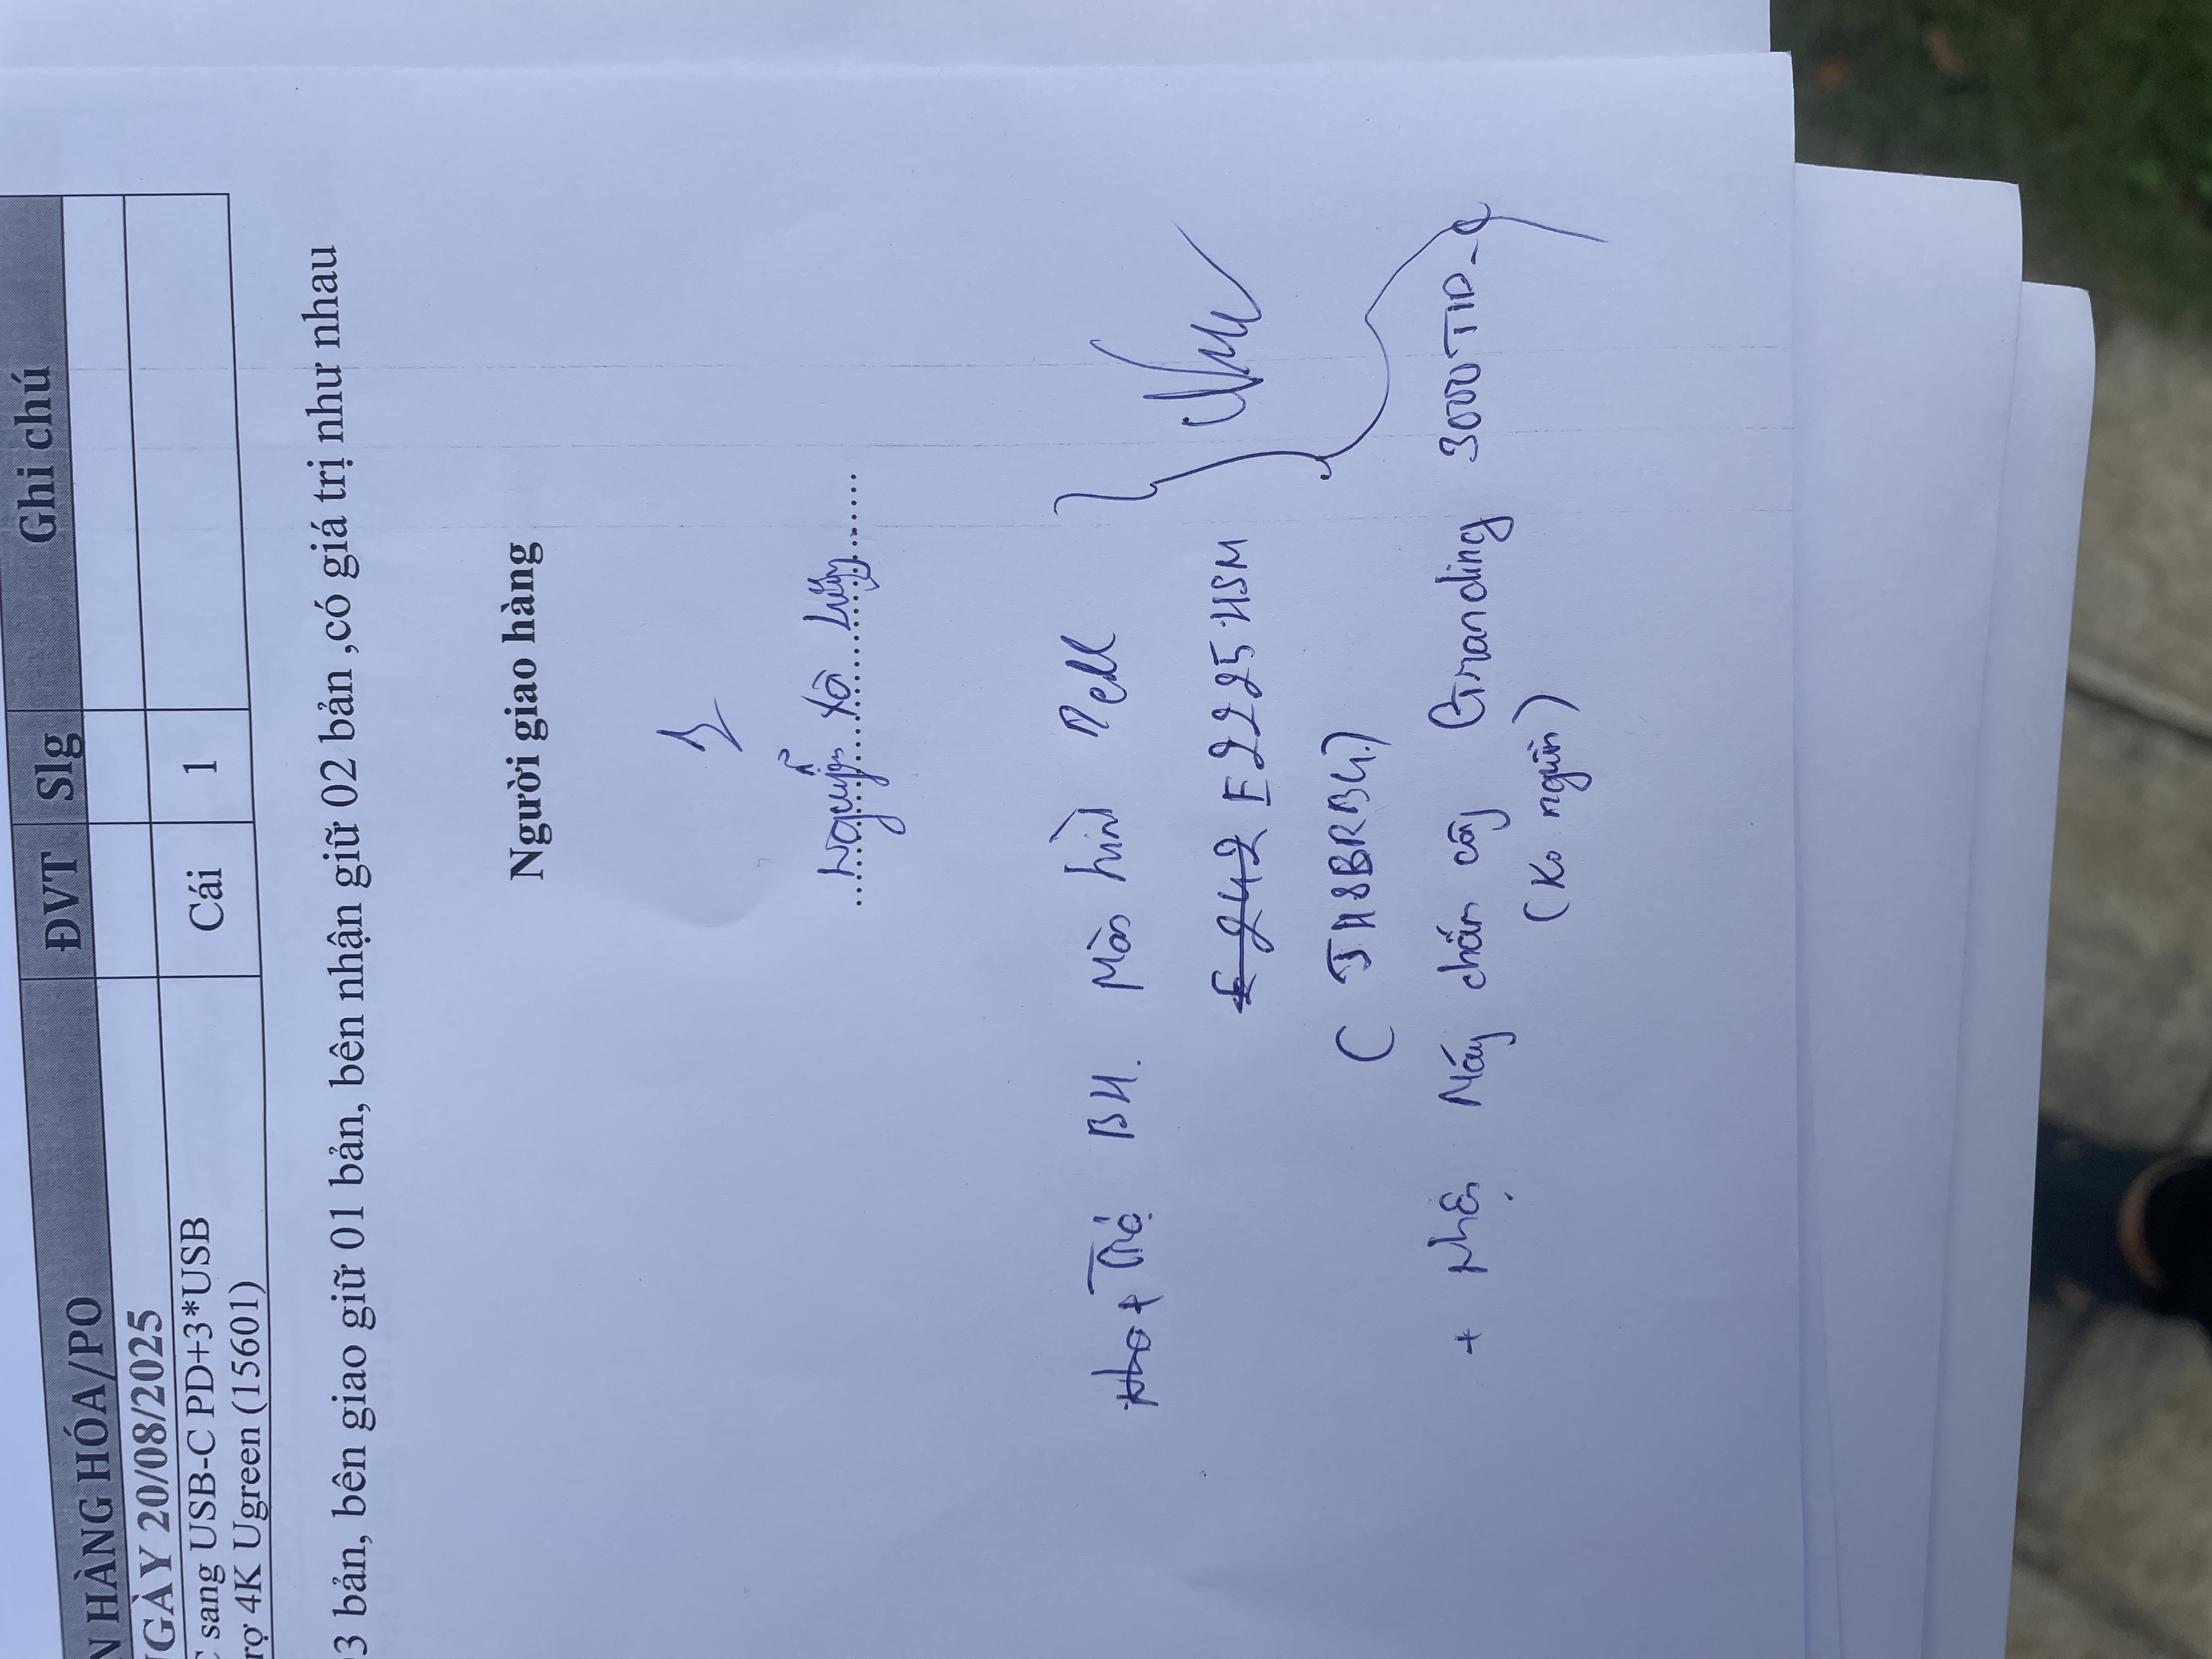 N HÀNG HÓA/PO ĐVT Slg Ghi chú
GÀY 20/08/2025
C sang USB-C PD+3*USB Cái 1
rợ 4K Ugreen (15601)
03 bản, bên giao giữ 01 bản, bên nhận giữ 02 bản ,có giá trị như nhau
Người giao hàng
Nguyễn Xô
+ Trả BH. Màn hình Dell
E2225HSM
(JH8BRB4.)
+ Nhận Máy chấm công Granding 3000TID-C
(Ko nguồn)